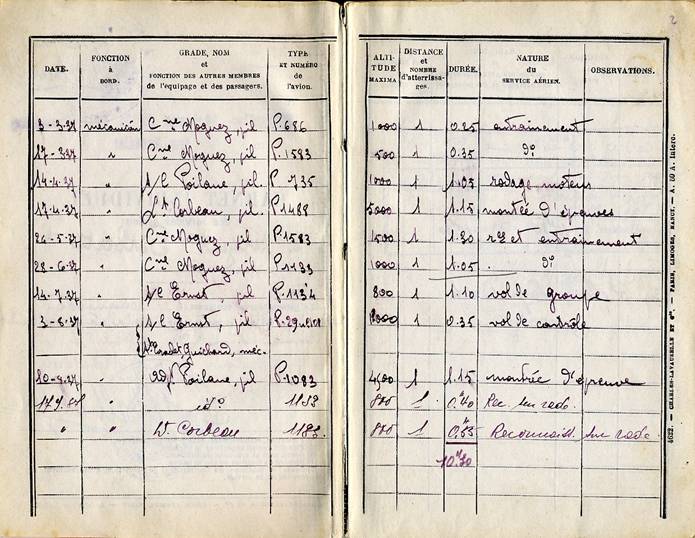 2
DATE. FONCTION à BORD. GRADE, NOM et FONCTION DES AUTRES MEMBRES de l'équipage et des passagers. TYPE ET NUMÉRO de l'avion. ALTITUDE MAXIMA DISTANCE et NOMBRE d'atterrissages. DURÉE. NATURE du SERVICE AÉRIEN. OBSERVATIONS.
3-3-37 mécanicien Cne Moguez, pil P.686 1000 1 0.25 entrainement
17-3-37 " Cne Moguez, pil P.1583 500 1 0.35 d°
14-4-37 " S/C Poilane, pil. P 735 1000 1 1.05 rodage moteur
17-4-37 " Lt Corbeau, pil. P.1488 5000 1 1.15 montée d'épreuves
26-5-37 " Cne Moguez, pil P.1583 1500 1 1.20 et entrainement
28-6-37 " Cne Moguez, pil P.1133 1000 1 1.05 d°
14-7-37 " S/C Ernst, pil P.1134 800 1 1.10 vol de groupe
3-8-37 " S/C Ernst, pil 1 0.35 vol de contrôle
Guichard, méc.
10-9-37 " Adjt Poilane, pil P.1083 4500 1 1.15 montée d'épreuve
" 1133 800 1 0.40 Rec. sur rade.
" " Lt Corbeau 800 1 0.55 Reconnaiss. sur rade
10.30
4622. — CHARLES-LAVAUZELLE ET Cie. — PARIS, LIMOGES, NANCY. — A. 60 A. Intérc.